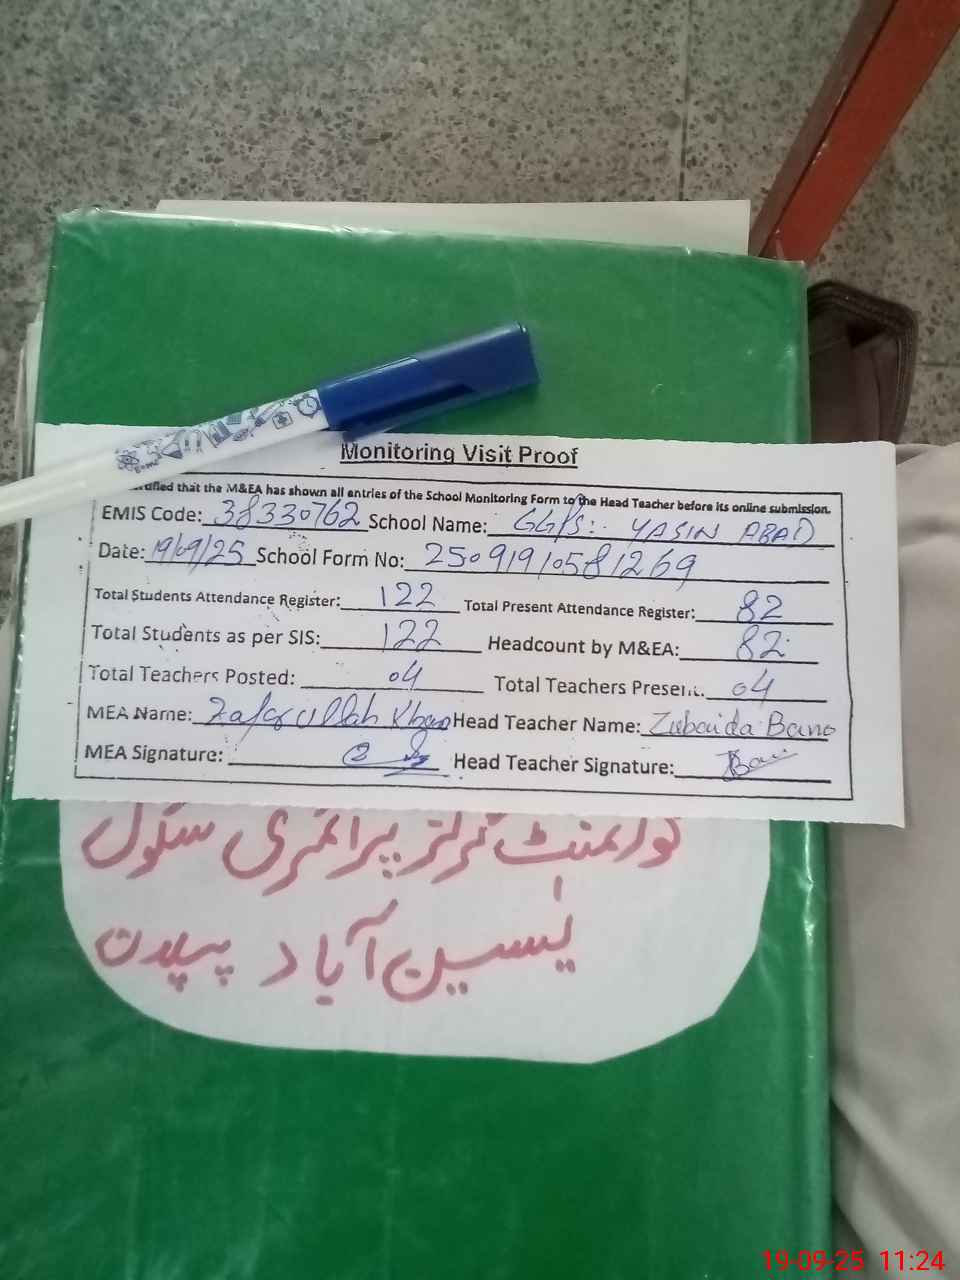 Monitoring Visit Proof
that the M&EA has shown all entries of the School Monitoring Form to the Head Teacher before its online submission.
EMIS Code: 38330762 School Name: GGPS:- YASIN ABAD
Date: 19/09/25 School Form No: 25091910581269
Total Students Attendance Register: 122 Total Present Attendance Register: 82
Total Students as per SIS: 122 Headcount by M&EA: 82
Total Teachers Posted: 04 Total Teachers Present: 04
MEA Name: Zafar ullah Khan Head Teacher Name: Zubaida Bano
MEA Signature: Head Teacher Signature: Bano
گورنمنٹ گرلز پرائمری سکول
یٰسین آباد پپلاں
19-09-25 11:24